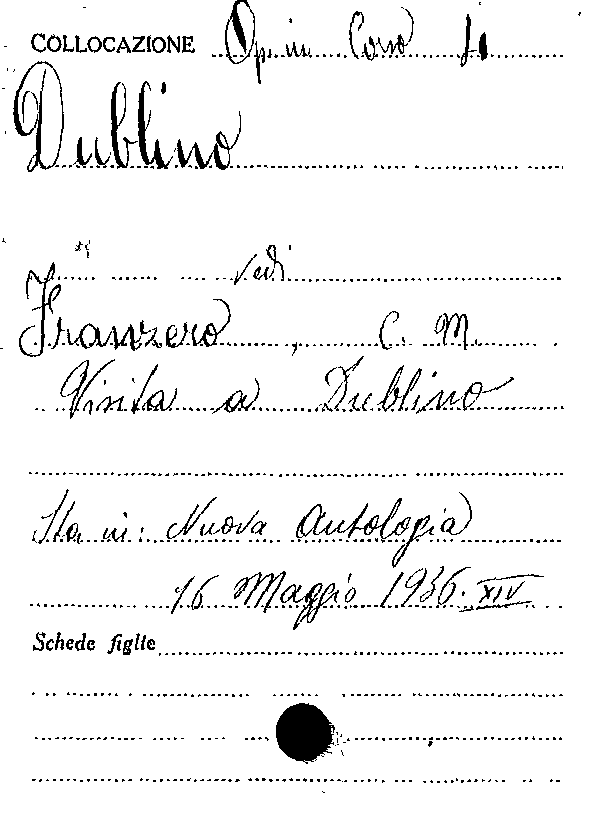 COLLOCAZIONE Op. in Corso
Dublino
vedi
Franzero, C. M.
Visita a Dublino
Sta in: Nuova Antologia
16 Maggio 1936. XIV
Schede figlie